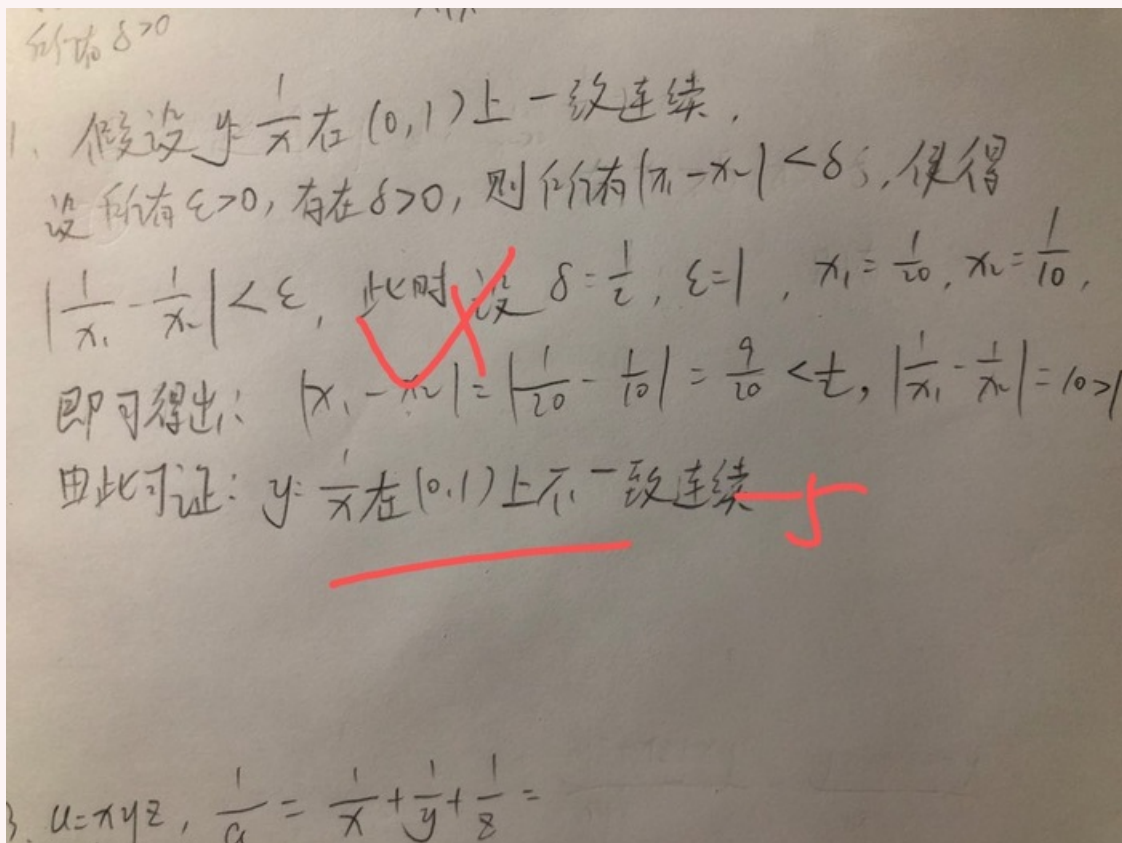 所有 δ>0
1. 假设 y=1/x 在 (0,1) 上一致连续.
设所有 ε>0, 存在 δ>0, 则所有 |x₁-x₂|<δ, 使得
|1/x₁ - 1/x₂| < ε, 此时设 δ=1/2, ε=1, x₁=1/20, x₂=1/10,
即可得出: |x₁-x₂|=|1/20 - 1/10|=9/20<1/2, |1/x₁ - 1/x₂|=10>1
由此可证: y=1/x 在 (0,1) 上不一致连续 -5
3. u=xyz, 1/u = 1/x+1/y+1/z =